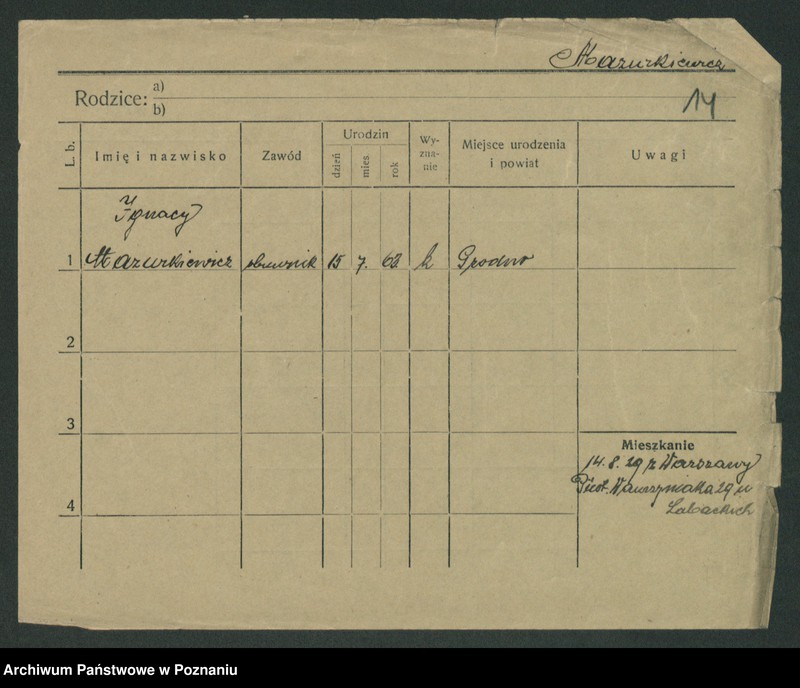 Mazurkiewicz
Rodzice: a)
b)
14
L. b.
Imię i nazwisko
Zawód
Urodzin
dzień
mies.
rok
Wy-
zna-
nie
Miejsce urodzenia
i powiat
Uwagi
Ignacy
1 Mazurkiewicz obuwnik 15 7. 62 k Grodno
2
3
4
Mieszkanie
14.8.29 z Warszawy
Wawrzyniaka 29 u
Archiwum Państwowe w Poznaniu